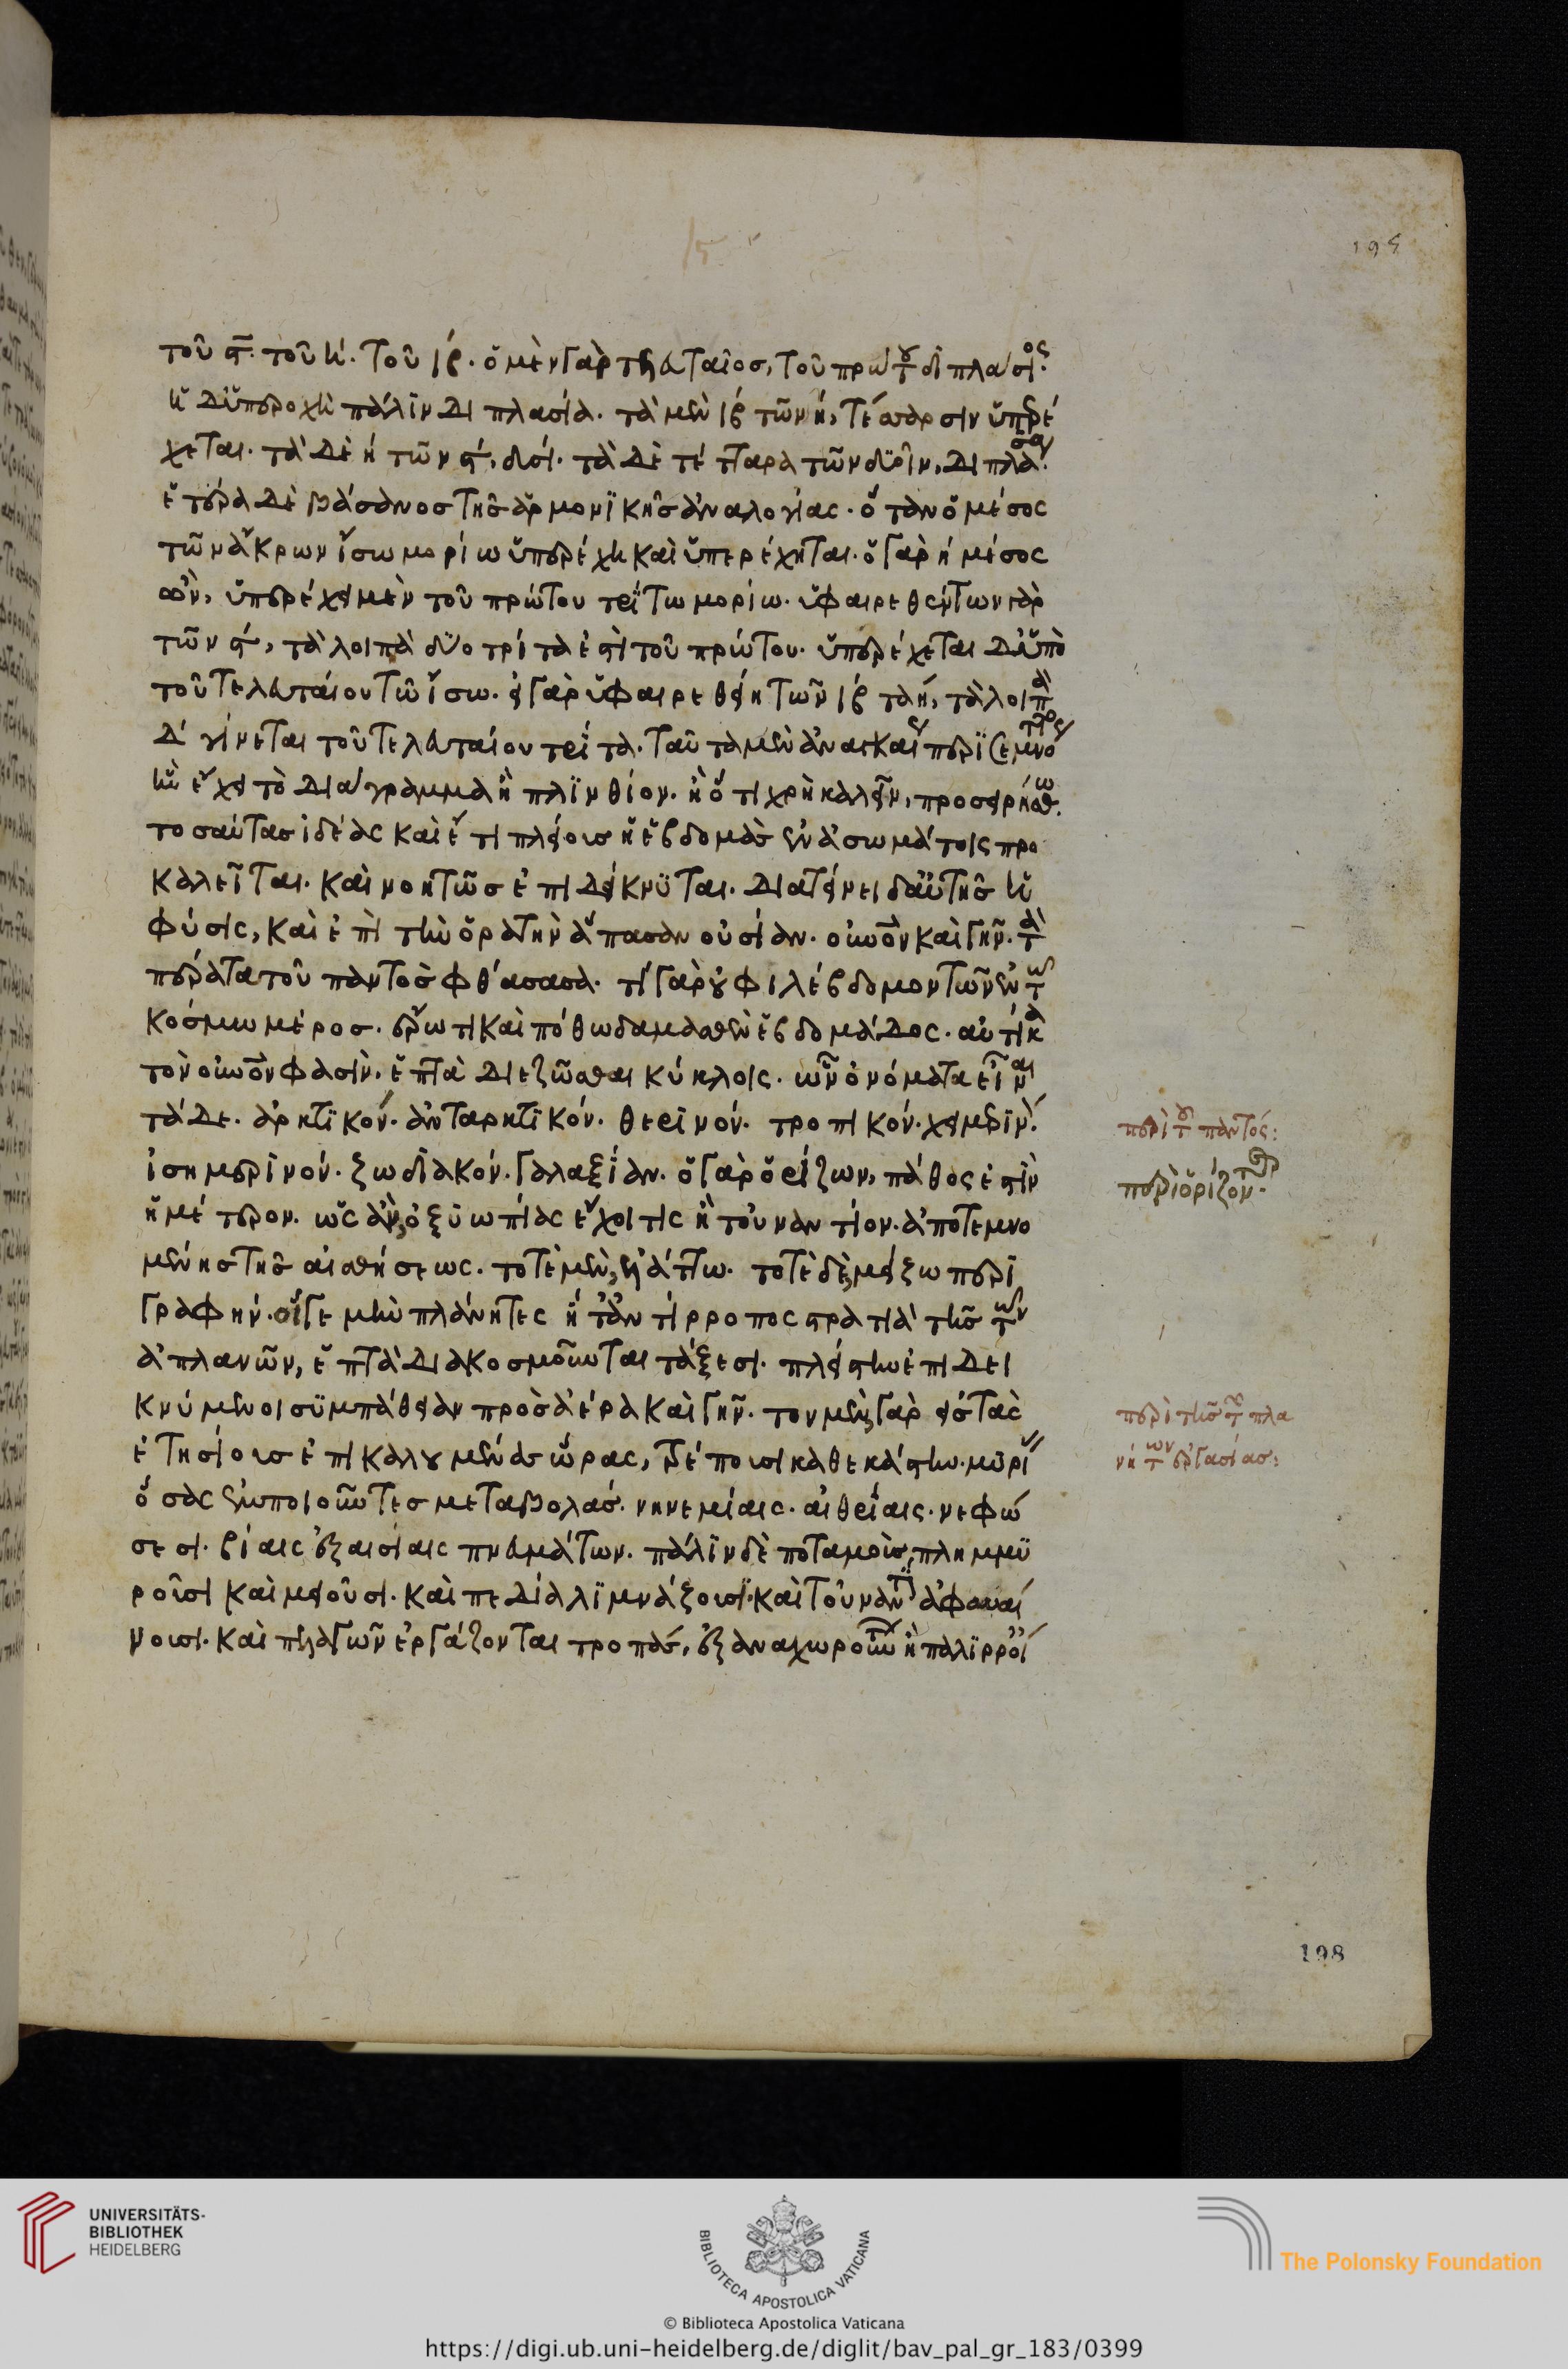 195
τοῦ ϛ̄. τοῦ η̄. τοῦ ιβ. ὁ μὲν γὰρ τελευταῖος, τοῦ πρώτου διπλάσιος·
ἡ δ' ὑπεροχὴ πάλιν διπλασία. τὰ μὲν ιβ τῶν η, τέσσαρσιν ὑπερέ
χεται. τὰ δὲ η τῶν ϛ, δυσί. τὰ δὲ τέτταρα τῶν δυοῖν, διπλάσια.
ἑτέρα δὲ βάσανος τῆς ἁρμονικῆς ἀναλογίας. ὅταν ὁ μέσος
τῶν ἄκρων ἴσω μορίω ὑπερέχη καὶ ὑπερέχηται. ὁ γὰρ η μέσος
ὢν, ὑπερέχει μὲν τοῦ πρώτου τρίτω μορίω. ὑφαιρεθέντων γὰρ
τῶν ϛ, τὰ λοιπὰ δύο τρίτα ἐστὶ τοῦ πρώτου. ὑπερέχεται δ' ὑπὸ
τοῦ τελευταίου τῶ ἴσω. εἰ γὰρ ὑφαιρεθείη τῶν ιβ τὰ η, τὰ λοιπὰ
δ γίνεται τοῦ τελευταίου τρίτα. ταῦτα μὲν ἀναγκαίως περὶ σεμνότητος
ἣν ἔχει τὸ διάγραμμα ἢ πλινθίον. ἢ ὅτι χρὴ καλεῖν, προσειρήσθω.
τοσαύτας ἰδέας καὶ ἔτι πλείους ἡ ἑβδομὰς ἐν ἀσωμάτοις προ
καλεῖται. καὶ νοητῶς ἐπιδείκνυται. διατείνει δ' αὐτῆς ἡ
φύσις, καὶ ἐπὶ τὴν ὁρατὴν ἅπασαν οὐσίαν. οὐνὸν καὶ γῆν. τὰ
πέρατα τοῦ παντὸς φθάσασα. τί γὰρ οὐ φιλέβδομον τῶν ἐν τῶ
κόσμω μέρος. ἔρωτι καὶ πόθω δαμασθὲν ἑβδομάδος. αὐτίκα
τὸν οὐνὸν φασὶν. ἑπτὰ διεζῶσθαι κύκλοις. ὧν ὀνόματα εἶναι
τάδε. ἀρκτικόν. ἀνταρκτικόν. θερινόν. τροπικόν. χειμερινόν.
ἰσημερινόν. ζωδιακόν. γαλαξίαν. ὁ γὰρ ὁρίζων, πάθος ἐστὶν
ἡμέτερον. ὡς ἂν ὀξυωπίας ἔχοι τις ἢ τοὐναντίον. ἀποτεμνο
μένης τῆς αἰσθήσεως. τοτὲ μὲν, ἐλάττω. τοτὲ δὲ, μείζω περι
γραφήν. οἵ γε μὴν πλάνητες ἡ τ' ἀντίρροπος στρατιὰ τῆς τῶν
ἀπλανῶν, ἑπτὰ διακοσμοῦνται τάξεσι. πλείστην ἐπιδει
κνύμενοι συμπάθειαν πρὸς ἀέρα καὶ γῆν. τὸν μὲν, γὰρ εἰς τὰς
ἐτησίους ἐπικαλουμένας ὥρας, τρέπουσι καθ' ἑκάστην. μυρί
ὅσας ἐμποιοῦντες μεταβολάς. νηνεμίαις. αἰθρίαις. νεφώ
σεσι. βίαις ἐξαισίαις πνευμάτων. πάλιν δὲ ποταμοὺς, πλημμυ
ροῦσι καὶ μειοῦσι. καὶ πεδία λιμνάζουσι. καὶ τοὐναντίον ἀφαυαί
νουσι. καὶ πελαγῶν ἐργάζονται τροπάς, ἐξαναχωρούντων ἢ παλιρροί
περὶ τοῦ παντός:
περὶ ὁρίζοντος.
περὶ τῆς τῶν πλα
νήτων ἐργασίας:
198
UNIVERSITÄTS-
BIBLIOTHEK
HEIDELBERG
BIBLIOTECA APOSTOLICA VATICANA
The Polonsky Foundation
© Biblioteca Apostolica Vaticana
https://digi.ub.uni-heidelberg.de/diglit/bav_pal_gr_183/0399